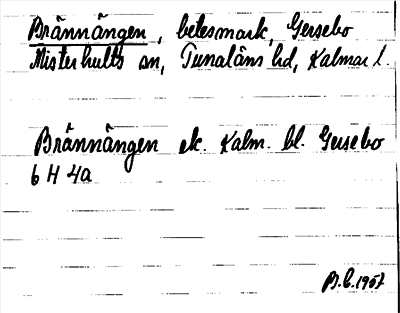 Brännängen, betesmark, Gersebo
Misterhults sn, Tunaläns hd, Kalmar l.
Brännängen ek. Kalm. bl. Gersebo
6 H 4a
B.C. 1957